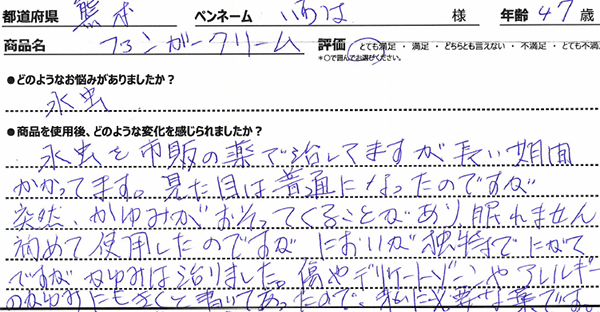 都道府県 熊本 ペンネーム いろは 様 年齢 47 歳
商品名 ファンガークリーム 評価 とても満足 ・ 満足 ・ どちらとも言えない ・ 不満足 ・ とても不満
*○で囲んでお選びください。
●どのようなお悩みがありましたか?
水虫
●商品を使用後、どのような変化を感じられましたか?
水虫を市販の薬で治してますが長い期間
かかってます。見た目は普通になったのですが
突然、かゆみがおそってくることがあり眠れません
初めて使用したのですが においが独特でにがて
ですが かゆみは治りました。傷やデリケートゾーンやアレルギー
のかゆみにも 書いてあったので、 必要な薬です。